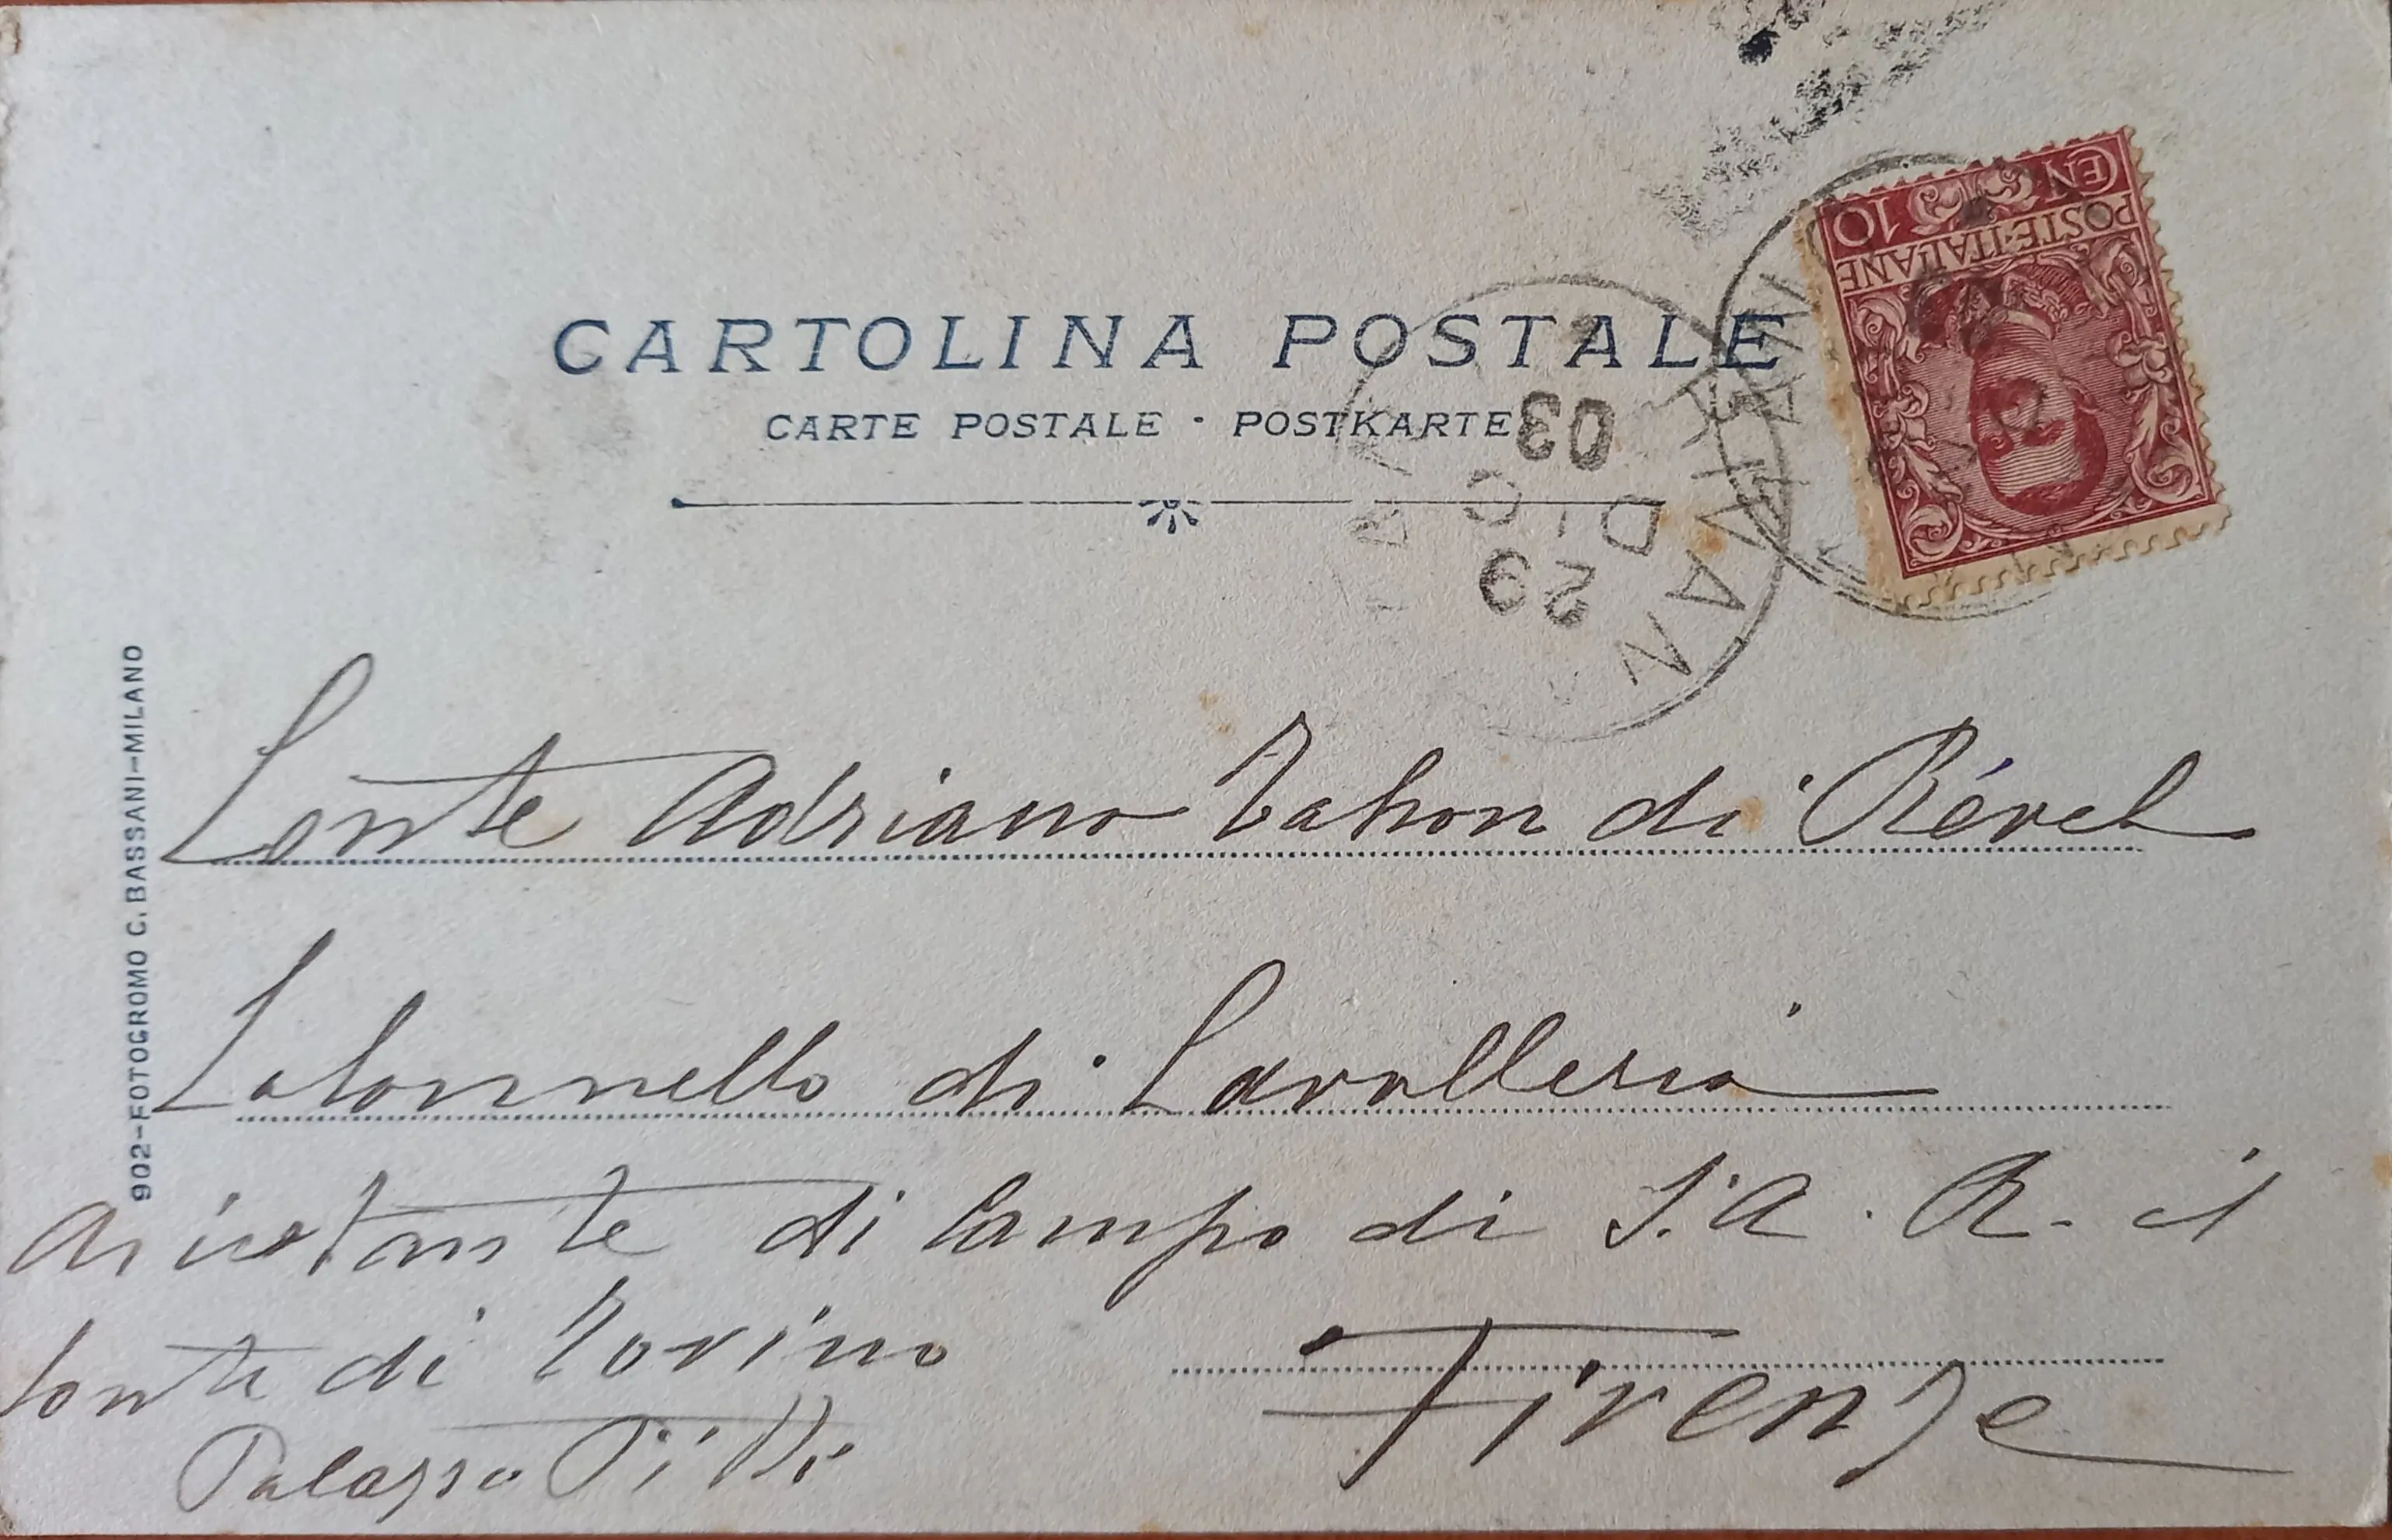 CARTOLINA POSTALE
CARTE POSTALE · POSTKARTE
CENT 10
POSTE·ITALIANE
29
DIC
03
902-FOTOGROMO C. BASSANI-MILANO
Conte Adriano Tahon di Révél
Colonnello di Cavalleria
Assistante di Campo di S. A. R. il
Conte di Torino
Palazzo Pitti
Firenze